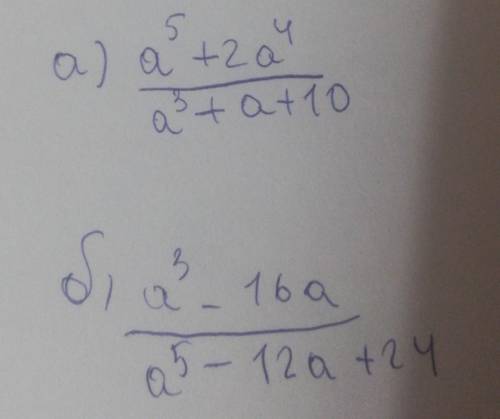 а) a⁵ + 2a⁴
a³ + a + 10
б) a³ - 16a
a⁵ - 12a + 24